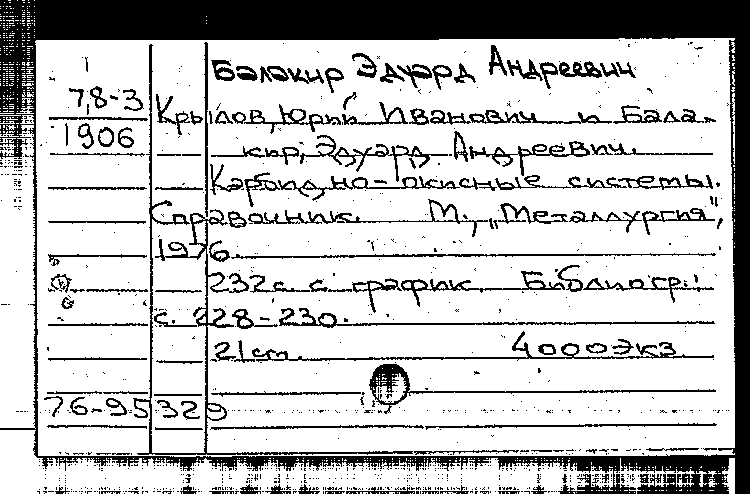 Балакир Эдуард Андреевич
7,8-3
Крылов, Юрий Иванович и Бала-
1906
кир, Эдуард Андреевич.
Карбидно-окисные системы.
Справочник. М., „Металлургия",
1976.
232 с. с график. Библиогр.:
с. 228-230.
21 cm. 4000 экз.
76-95329